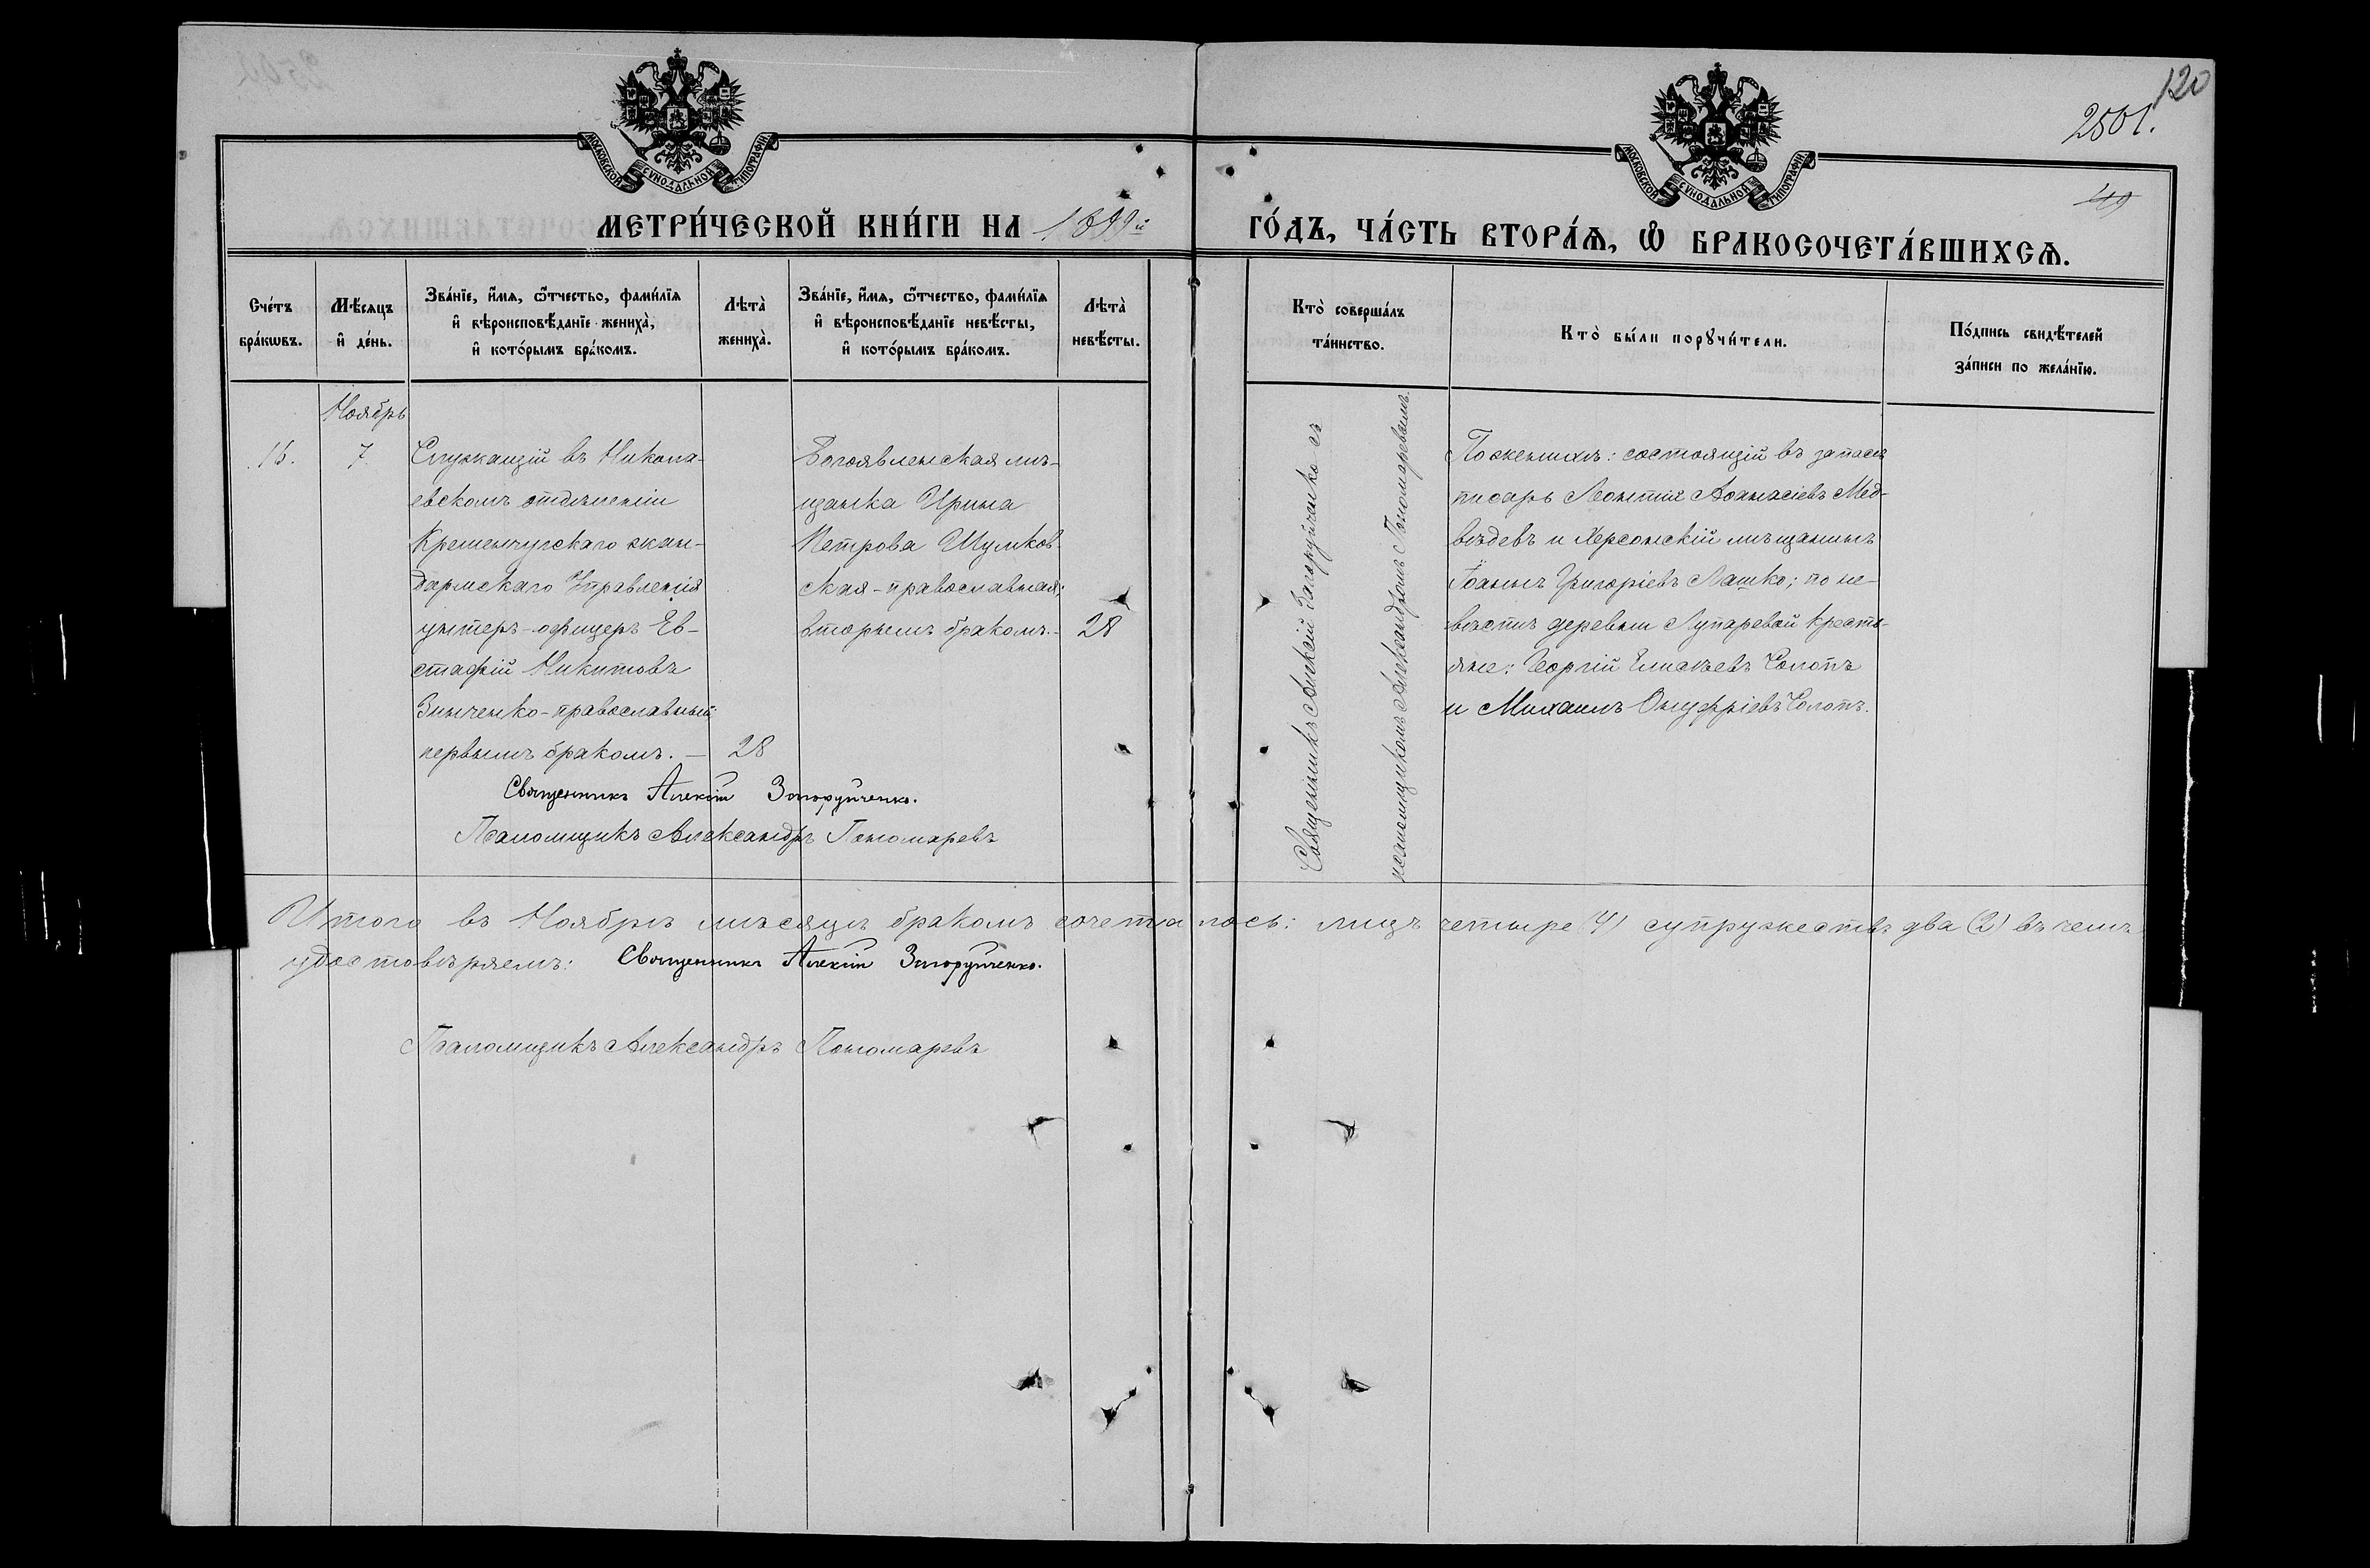 120
2501.
49
МОСКОВСКОЙ СѴНОДАЛЬНОЙ ТИПОГРАФІИ
МОСКОВСКОЙ СѴНОДАЛЬНОЙ ТИПОГРАФІИ
МЕТРИ́ЧЕСКОЙ КНИ́ГИ НА 1899й ГО́ДЪ, ЧА́СТЬ ВТОРА́Ѧ, Ѽ БРАКОСОЧЕТА́ВШИХСѦ.
Сче́тъ
бра́кѡвъ.
Мѣ́сяцъ
и҆ де́нь.
Зва́нїе, и҆́мѧ, ѻ҆́тчество, фами́лїѧ
и҆ вѣроисповѣ́данїе жениха̀,
и҆ кото́рымъ бра́комъ.
Лѣта̀
жениха̀.
Зва́нїе, и҆́мѧ, ѻ҆́тчество, фами́лїѧ
и҆ вѣроисповѣ́данїе невѣ́сты,
и҆ кото́рымъ бра́комъ.
Лѣта̀
невѣ́сты.
Кто̀ соверша́лъ
та́инство.
Кто̀ бы́ли порꙋчи́тели.
По́дпись свидѣ́телей
за́писи по жела́нїю.
Ноябрь
15.
7.
Служащій въ Никола-
евскомъ отдѣленіи
Кременчугскаго жан-
дармскаго Управленія
унтеръ-офицеръ Ев-
стафій Никитовъ
Зинченко - православный;
первымъ бракомъ. –
28
Богоявленская мѣ-
щанка Ирина
Петрова Шумков-
ская - православная;
вторымъ бракомъ. –
28
Священникъ Алексій Запоруйченко съ
псаломщикомъ Александромъ Пономаревымъ.
По женихѣ: состоящій въ запасѣ
писарь Леонтій Аѳанасіевъ Мед-
вѣдевъ и Херсонскій мѣщанинъ
Іоаннъ Григоріевъ Лашко; по не-
вѣстѣ деревни Лупаревой кресть-
яне: Георгій Елисѣевъ Солопъ
и Михаилъ Онуфріевъ Солопъ.
Священникъ Алексій Запоруйченко.
Псаломщикъ Александръ Пономаревъ
Итого въ Ноябрѣ мѣсяцѣ бракомъ сочеталось: лицъ четыре (4) супружествъ два (2) въ чемъ
удостовѣряемъ: Священникъ Алексій Запоруйченко.
Псаломщикъ Александръ Пономаревъ